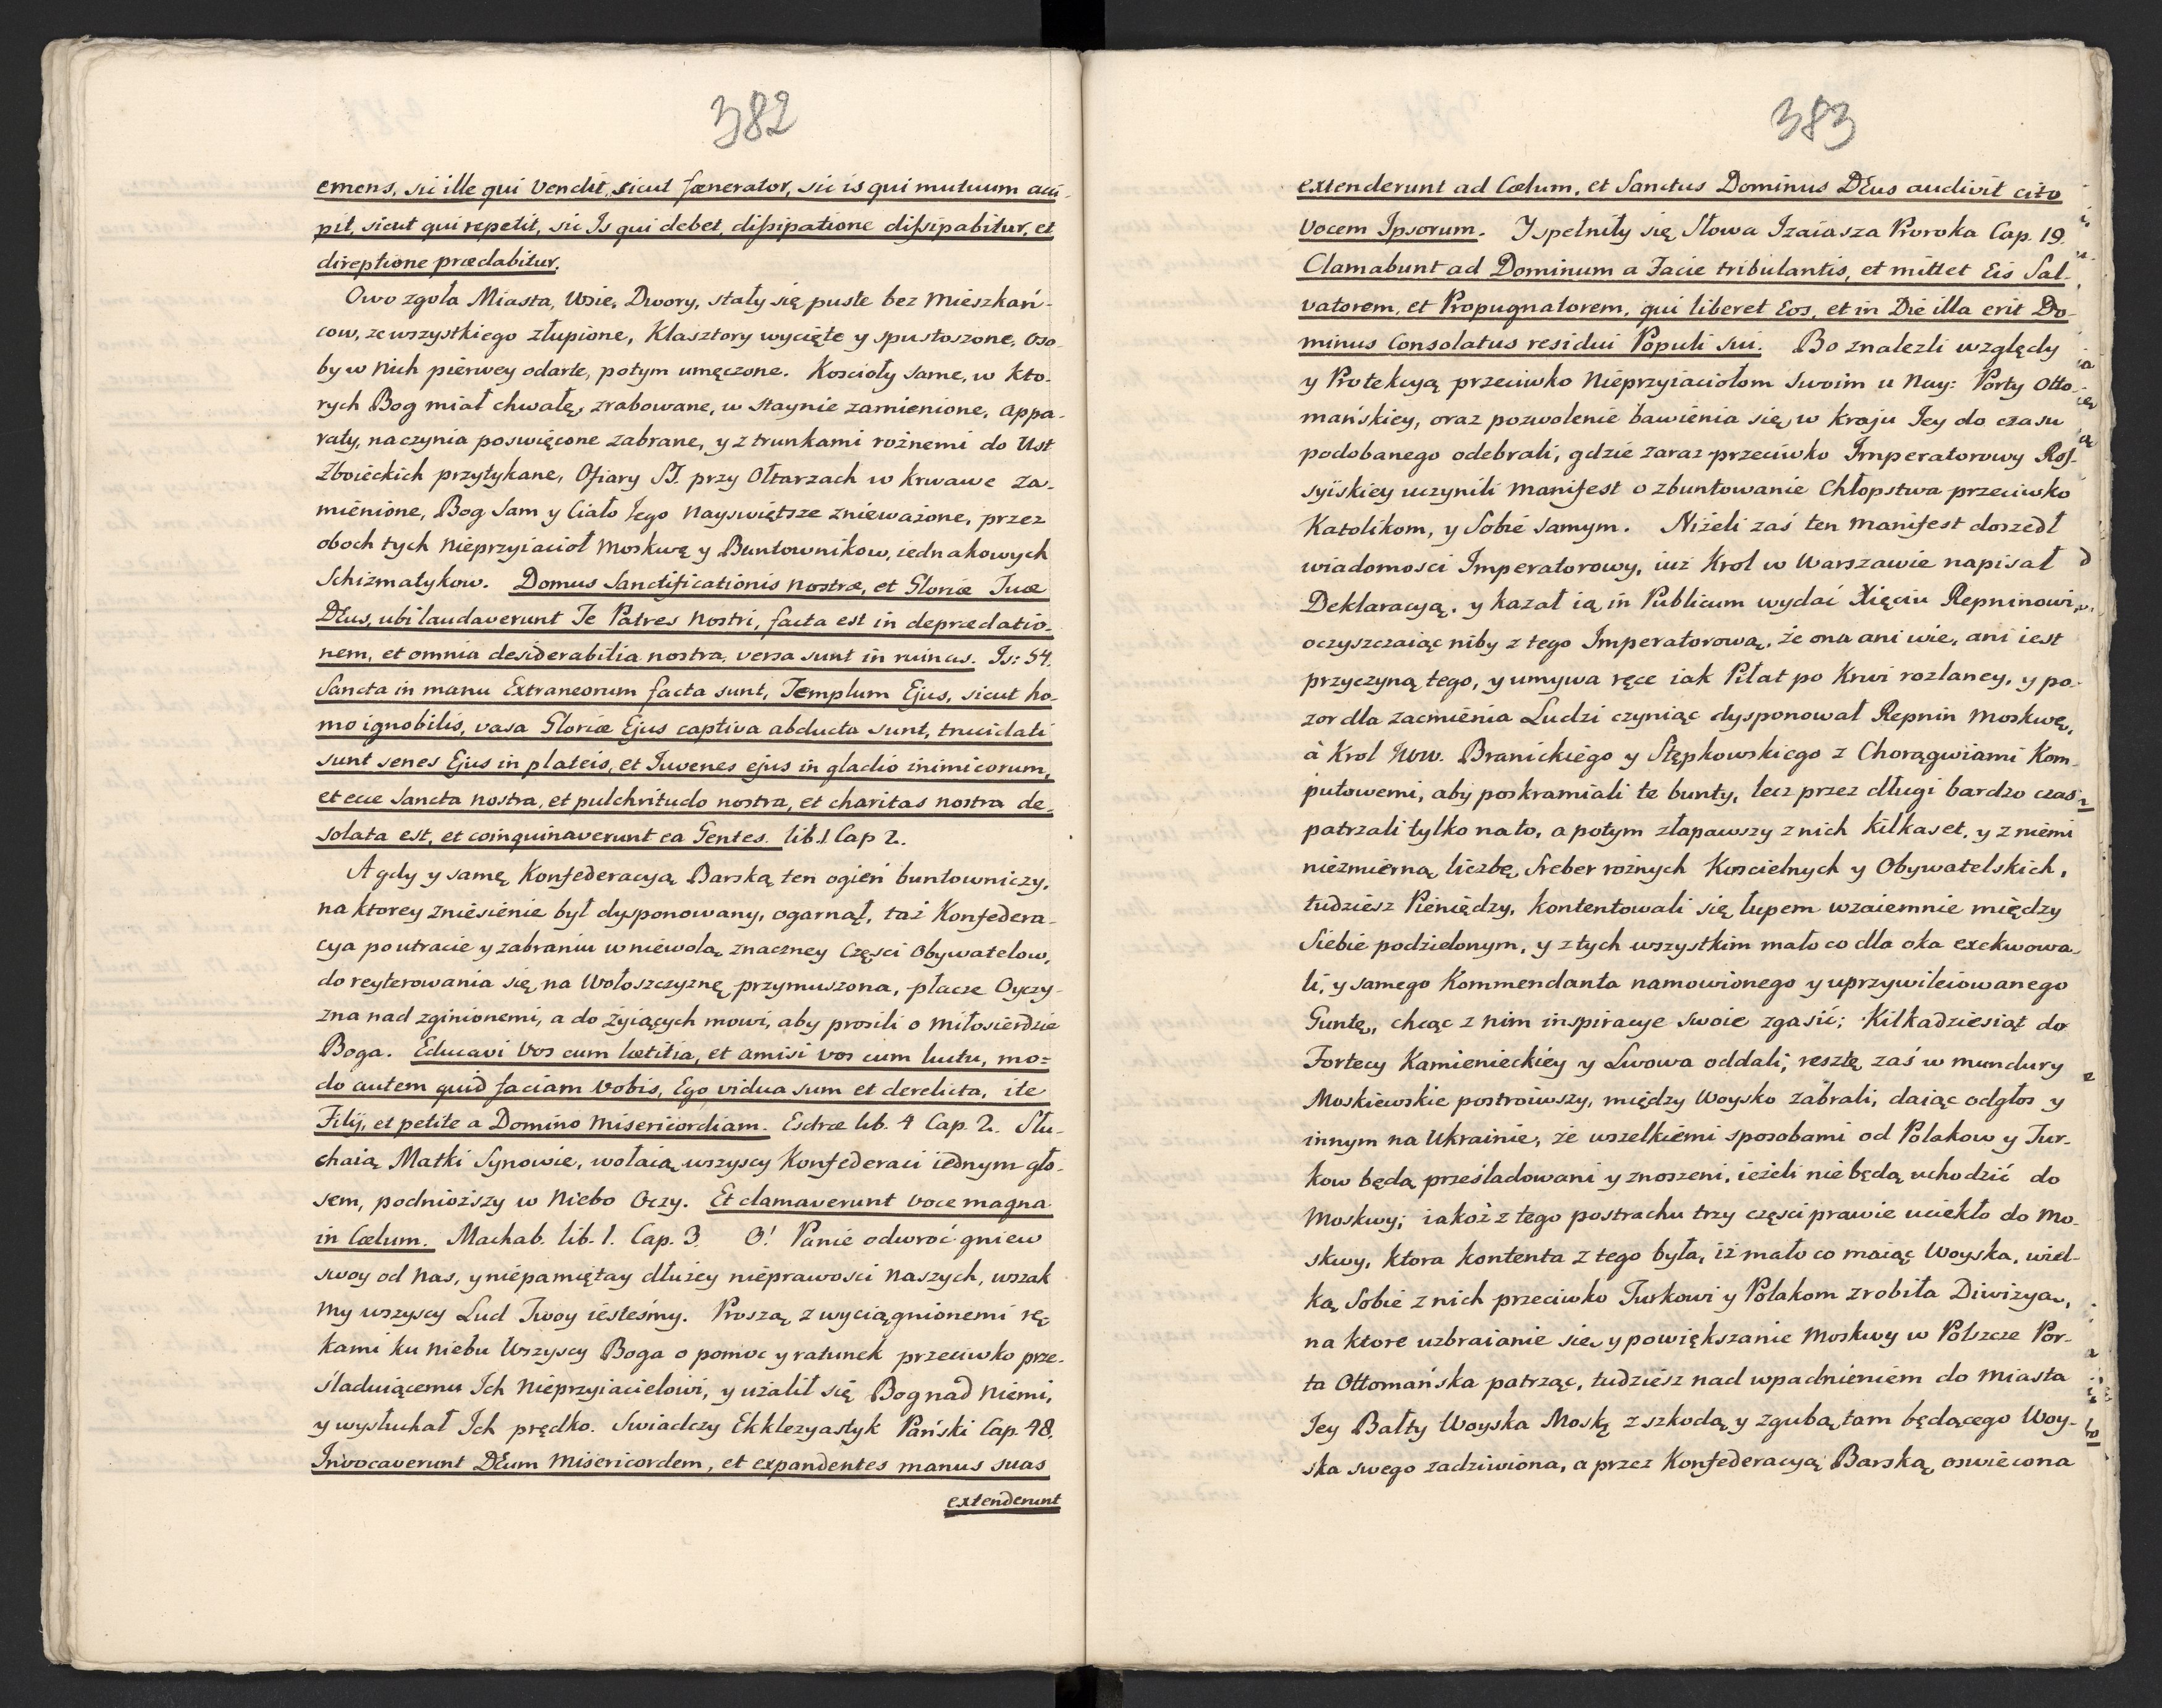 382
emens, sic ille qui vendit, sicut fænerator, sic is qui mutuum acci-
pit, sicut qui repetit, sic Is qui debet, dissipatione dissipabitur, et
direptione prædabitur.
Owo zgoła Miasta, Wsie, Dwory, stały się puste bez Mieszkań-
cow, ze wszystkiego złupione, Klasztory wycięte y spustoszone, Oso-
by w Nich pierwey odarte, potym umęczone. Koscioły same, w kto-
rych Bog miał chwałę, zrabowane, w Staynie zamienione, Appa-
raty, naczynia poswięcone zabrane, y z trunkami rożnemi do Ust
Zboieckich przytykane, Ofiary SS. przy Ołtarzach w krwawe za-
mienione, Bog Sam y Ciało Jego Nayswiętsze znieważone, przez
oboch tych Nieprzyiacioł Moskwę y Buntownikow, iednakowych
Schizmatykow. Domus Sanctificationis Nostræ, et Gloriæ Tuæ
DEus, ubi laudaverunt Te Patres Nostri, facta est in deprædatio-
nem, et omnia desiderabilia nostra, versa sunt in ruinas. Is: 54.
Sancta in manu Extraneorum facta sunt, Templum Ejus, sicut ho-
mo ignobilis, vasa Gloriæ Ejus captiva abducta sunt, trucidati
sunt senes Ejus in plateis, et Juvenes ejus in gladio inimicorum,
et ecce Sancta nostra, et pulchritudo nostra, et charitas nostra de-
solata est, et coinquinaverunt ea Gentes. lib. 1 Cap 2.
A gdy y samę Konfederacyą Barską ten ogień buntowniczy,
na ktorey zniesienie był dysponowany, ogarnął, taż Konfedera-
cya po utracie y zabraniu w niewolą znaczney Części Obywatelow,
do reyterowania się na Wołoszczyznę przymuszona, płacze Oyczy-
zna nad zginionemi, a do żyiących mowi, aby prosili o Miłosierdzie
Boga. Educavi Vos cum lætitia, et amisi vos cum luctu, mo=
do autem quid faciam Vobis, Ego vidua sum et derelicta, ite
Filij, et petite a Domino Misericordiam. Esdræ lib. 4 Cap. 2. Słu-
chaią Matki Synowie, wołaią wszyscy Konfederaci iednym gło-
sem, podnioższy w Niebo Oczy. Et clamaverunt voce magna
in Cælum. Machab. lib. 1. Cap. 3. O! Panie odwroć gniew
swoy od Nas, y niepamiętay dłużey nieprawosci Naszych, wszak
My wszyscy Lud Twoy iesteśmy. Proszą z wyciągnionemi rę-
kami ku Niebu Wszyscy Boga o pomoc y ratunek przeciwko prze-
śladuiącemu Ich Nieprzyiacielowi, y użalił się Bog nad Niemi,
y wysłuchał Ich prędko. Swiadczy Ekklezyastyk Pański Cap. 48.
Invocaverunt DEum Misericordem, et expandentes manus suas
extenderunt
383
extenderunt ad Cœlum, et Sanctus Dominus DEus audivit cito
Vocem Ipsorum. Jspełniły się Słowa Izaiasza Proroka Cap. 19.
Clamabunt ad Dominum a Facie tribulantis, et mittet Eis Sal-
vatorem, et Propugnatorem, qui liberet Eos, et in Die illa erit Do-
minus Consolatus residui Populi sui. Bo znalezli względy
y Protekcyą przeciwko Nieprzyiaciołom Swoim u Nay: Porty Otto-
mańskiey, oraz pozwolenie bawienia się w kraju Jey do czasu
podobanego odebrali, gdzie zaraz przeciwko Imperatorowy Ros-
syiskiey uczynili Manifest o zbuntowanie Chłopstwa przeciwko
Katolikom, y Sobie samym. Niżeli zaś ten Manifest doszedł
wiadomosci Imperatorowy, iuż Krol w Warszawie napisał
Deklaracyą, y kazał ią in Publicum wydać Xięciu Repninowi,
oczyszczaiąc niby z tego Imperatorową, że ona ani wie, ani iest
przyczyną tego, y umywa ręce iak Piłat po Krwi rozlaney, y po-
zor dla zacmienia Ludzi czyniąc dysponował Repnin Moskwę,
à Krol WW. Branickiego y Stępkowskiego z Chorągwiami Kom-
putowemi, aby poskramiali te bunty, lecz przez długi bardzo czas
patrzali tylko na to, a potym złapawszy z nich Kilkaset, y z niemi
niezmierną liczbę Sreber rożnych Koscielnych y Obywatelskich,
tudziesz Pieniędzy, kontentowali się łupem wzaiemnie między
Siebie podzielonym, y z tych wszystkim mało co dla oka exekwowa-
li, y samego Kommendanta namowionego y uprzywileiowanego
Guntę, chcąc z nim inspiracye swoie zgasić; Kilkadziesiąt do
Fortecy Kamienieckiey y Lwowa oddali, resztę zaś w mundury
Moskiewskie postroiwszy, między Woysko zabrali, daiąc odgłos y
innym na Ukrainie, że wszelkiemi sposobami od Polakow y Tur-
kow będą prześladowani y znoszeni, ieżeli nie będą uchodzić do
Moskwy; iakoż z tego postrachu trzy częsci prawie uciekło do Mo-
skwy, ktora kontenta z tego była, iż mało co maiąc Woyska, wiel-
ką Sobie z nich przeciwko Turkowi y Polakom zrobiła Diwizyą,
na ktore uzbraianie się y powiększanie Moskwy w Polszcze Por-
ta Ottomańska patrząc, tudziesz nad wpadnieniem do Miasta
Jey Bałty Woyska Mosk. z szkodą y zgubą tam będącego Woy-
ska swego zadziwiona, a przez Konfederacyą Barską oswiecona